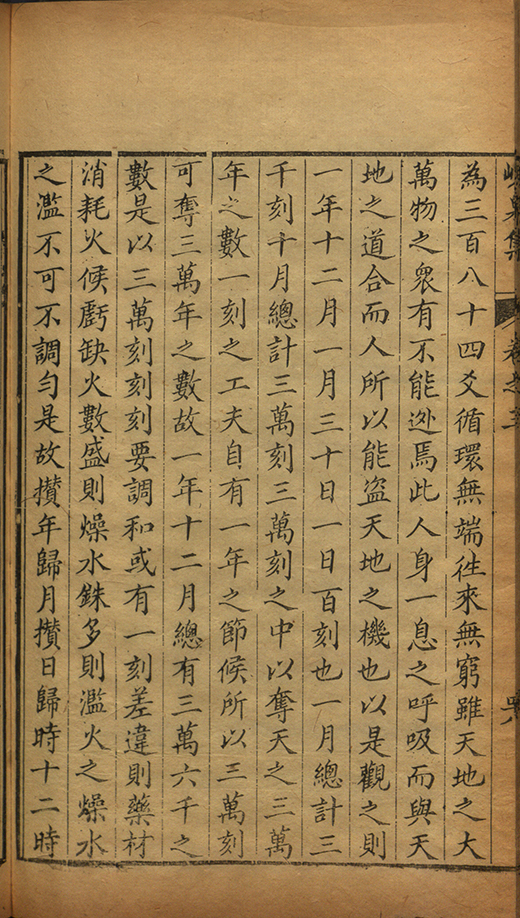 為三百八十四爻循環無端徃來無窮雖天地之大
萬物之衆有不能迯焉此人身一息之呼吸而與天
地之道合而人所以能盗天地之機也以是觀之則
一年十二月一月三十日一日百刻也一月總計三
千刻十月總計三萬刻三萬刻之中以奪天之三萬
年之數一刻之工夫自有一年之節候所以三萬刻
可奪三萬年之數故一年十二月總有三萬六千之
數是以三萬刻刻刻要調和或有一刻差違則藥材
消耗火候虧缺火數盛則燥水銖多則濫火之燥水
之濫不可不調勻是故攅年歸月攅日歸時十二時